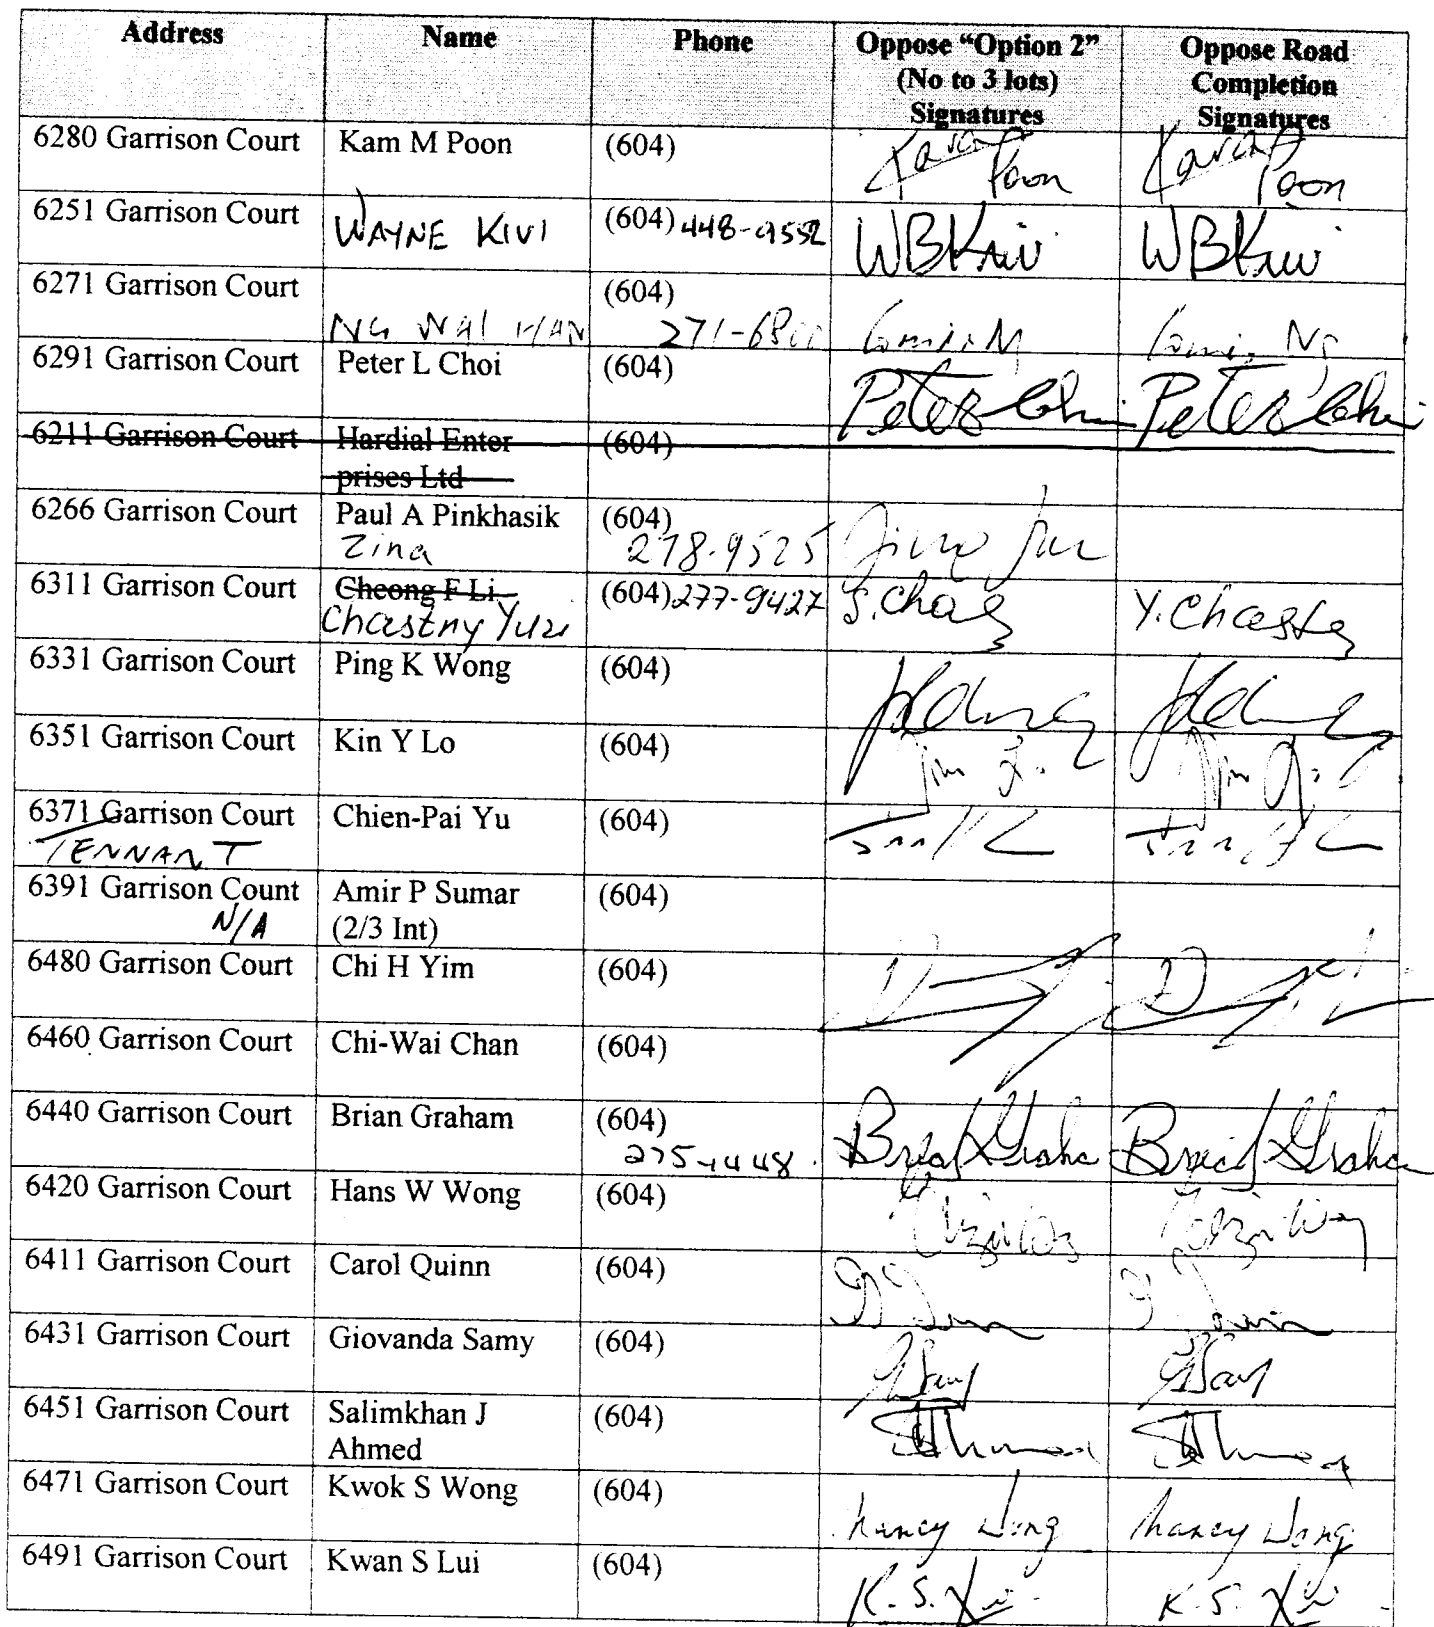 Address Name Phone Oppose “Option 2” Oppose Road
(No to 3 lots) Completion
Signatures Signatures
6280 Garrison Court Kam M Poon (604) Poon Poon
6251 Garrison Court WAYNE KIVI (604) 448-9552 WBKivi WBKivi
6271 Garrison Court (604)
NG WAI HAN 271-68 Ng
6291 Garrison Court Peter L Choi (604) Peter Choi Peter Choi
6211 Garrison Court Hardial Enter (604)
prises Ltd
6266 Garrison Court Paul A Pinkhasik (604)
Zina 278-9525
6311 Garrison Court Cheong F Li (604) 277-9427 Y. Chastny
Chastny Yuri
6331 Garrison Court Ping K Wong (604)
6351 Garrison Court Kin Y Lo (604)
6371 Garrison Court Chien-Pai Yu (604)
TENNANT
6391 Garrison Count Amir P Sumar (604)
N/A (2/3 Int)
6480 Garrison Court Chi H Yim (604)
6460 Garrison Court Chi-Wai Chan (604)
6440 Garrison Court Brian Graham (604)
275-1448 Brian Graham Brian Graham
6420 Garrison Court Hans W Wong (604)
6411 Garrison Court Carol Quinn (604)
6431 Garrison Court Giovanda Samy (604)
6451 Garrison Court Salimkhan J (604)
Ahmed
6471 Garrison Court Kwok S Wong (604)
nancy Wong nancy Wong
6491 Garrison Court Kwan S Lui (604)
K. S. K. S.